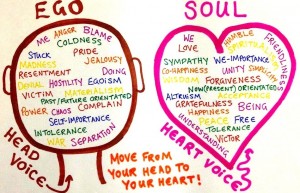 EGO
ME ANGER BLAME
COLDNESS
STUCK PRIDE
MADNESS JEALOUSY
RESENTMENT DOING
DENIAL HOSTILITY EGOISM
VICTIM MATERIALISM
PAST/FUTURE ORIENTATED
POWER CHAOS COMPLAIN
SELF-IMPORTANCE
INTOLERANCE
WAR SEPARATION
HEAD VOICE
SOUL
WE HUMBLE FRIENDLINESS
LOVE SPIRITUALISM
SYMPATHY WE-IMPORTANCE
CO-HAPPINESS UNITY SIMPLICITY
WISDOM FORGIVENESS
NOW(PRESENT) ORIENTATED
ALTRUISM ACCEPTANCE
GRATEFULNESS
HAPPINESS BEING
PEACE FREE
TOLERANCE
UNDERSTANDING VICTOR
HEART VOICE
MOVE FROM
YOUR HEAD TO
YOUR HEART!